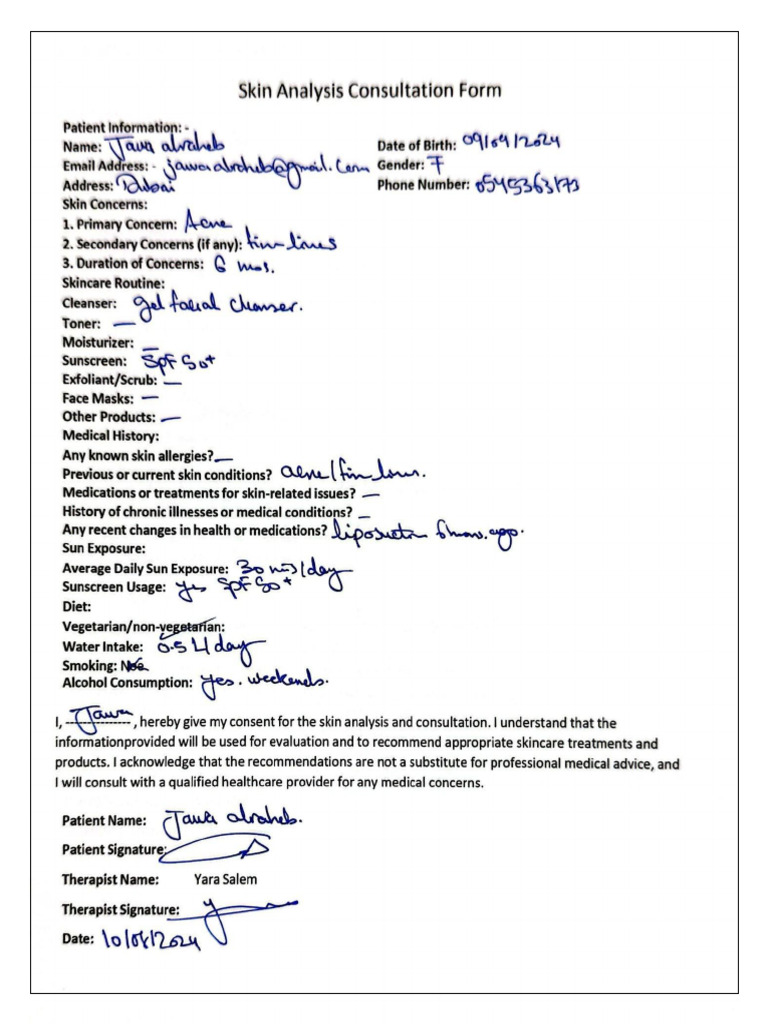 Skin Analysis Consultation Form
Patient Information: -
Name: Jawa alraheb Date of Birth: 09/09/2024
Email Address: - jawaalraheb@gmail.com Gender: F
Address: Dubai Phone Number: 0545363173
Skin Concerns:
1. Primary Concern: Acne
2. Secondary Concerns (if any): fin lines
3. Duration of Concerns: 6 mos.
Skincare Routine:
Cleanser: gel facial cleanser.
Toner: —
Moisturizer: —
Sunscreen: SPF 50+
Exfoliant/Scrub: —
Face Masks: —
Other Products: —
Medical History:
Any known skin allergies? —
Previous or current skin conditions? acne/fin lines.
Medications or treatments for skin-related issues? —
History of chronic illnesses or medical conditions? —
Any recent changes in health or medications? 6 ago.
Sun Exposure:
Average Daily Sun Exposure: 30 /day
Sunscreen Usage: yes SPF 50+
Diet:
Vegetarian/non-vegetarian:
Water Intake: 0.5 L/day
Smoking:
Alcohol Consumption: yes. weekends.
I, Jawa, hereby give my consent for the skin analysis and consultation. I understand that the
informationprovided will be used for evaluation and to recommend appropriate skincare treatments and
products. I acknowledge that the recommendations are not a substitute for professional medical advice, and
I will consult with a qualified healthcare provider for any medical concerns.
Patient Name: Jawa alraheb.
Patient Signature:
Therapist Name: Yara Salem
Therapist Signature:
Date: 10/08/2024